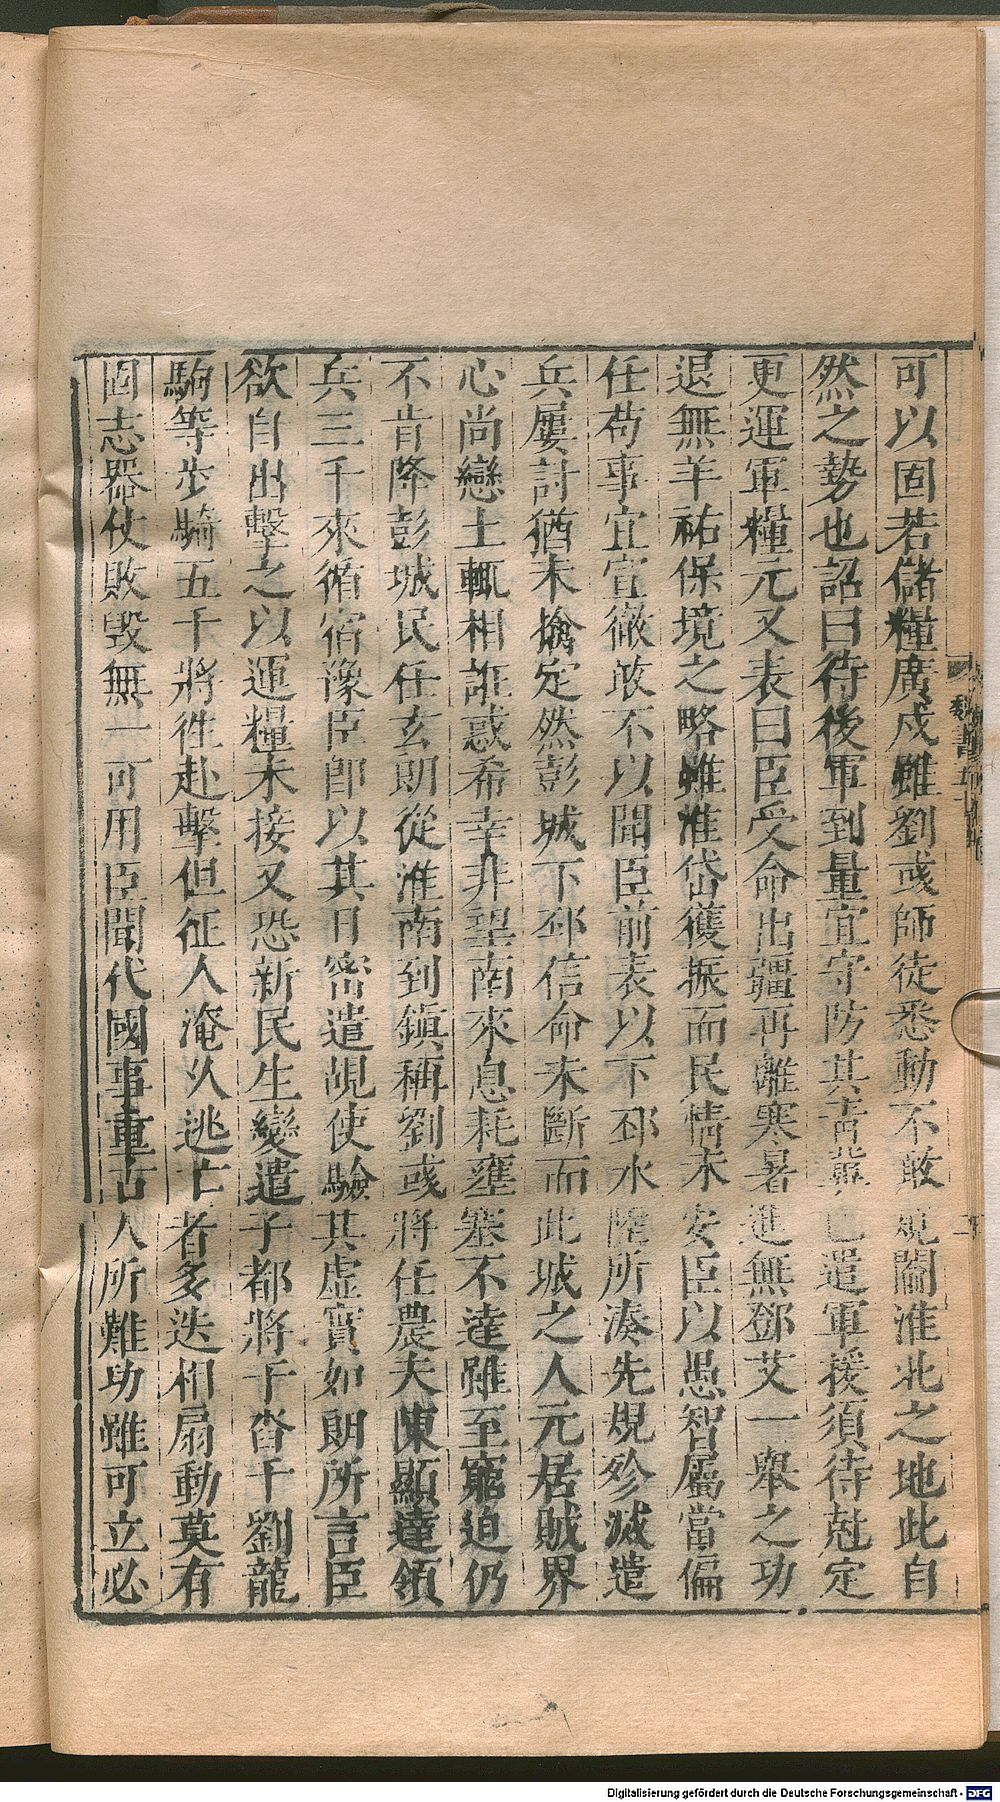 可以固若儲糧廣戍雖劉彧師徒悉動不敢窺閫淮北之地此自
然之勢也詔曰待後軍到量宜守防其青冀已遣軍援須待尅定
更運軍糧元又表曰臣受命出疆再離寒暑進無鄧艾一舉之功
退無羊祐保境之略雖淮岱獲振而民情未安臣以愚智屬當偏
任苟事宜宣徹敢不以聞臣前表以下邳水陸所湊先規殄滅遣
兵屢討猶未擒定然彭城下邳信命未斷而此城之人元居賊界
心尚戀土輒相誑惑希幸非望南來息耗壅塞不達雖至窮迫仍
不肯降彭城民任玄朗從淮南到鎮稱劉彧將任農夫陳顯達領
兵三千來循宿豫臣卽以其日密遣覘使驗其虛實如朗所言臣
欲自出擊之以運糧未接又恐新民生變遣子都將于沓千劉龍
駒等步騎五千將徃赴擊但征人淹久逃亡者多迭相扇動莫有
固志器仗敗毀無一可用臣聞代國事重古人所難功雖可立必
魏書五十
Digitalisierung gefördert durch die Deutsche Forschungsgemeinschaft - DFG